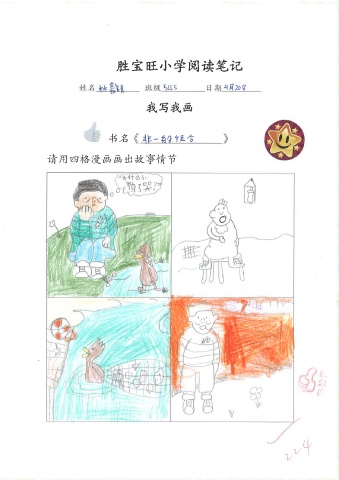 胜宝旺小学阅读笔记
姓名 班级 5G5 日期 4月20日
我写我画
书名《非一般组合》
请用四格漫画画出故事情节
为什么小鸭哭了?
224